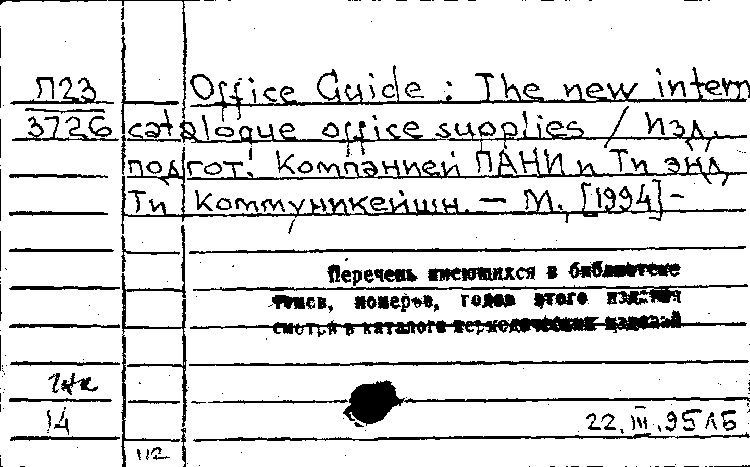 П23 Office Guide : The new intern
3726 catalogue office supplies / Изд.
подгот. Компанией ПАНИ и Ти энд
Ти Коммуникейшн. — М., [1994] -
Перечень имеющихся в библиотеке
томов, номеров, годов этого издания
смотри в каталоге периодических изданий
14
22.III.95 ЛБ
112